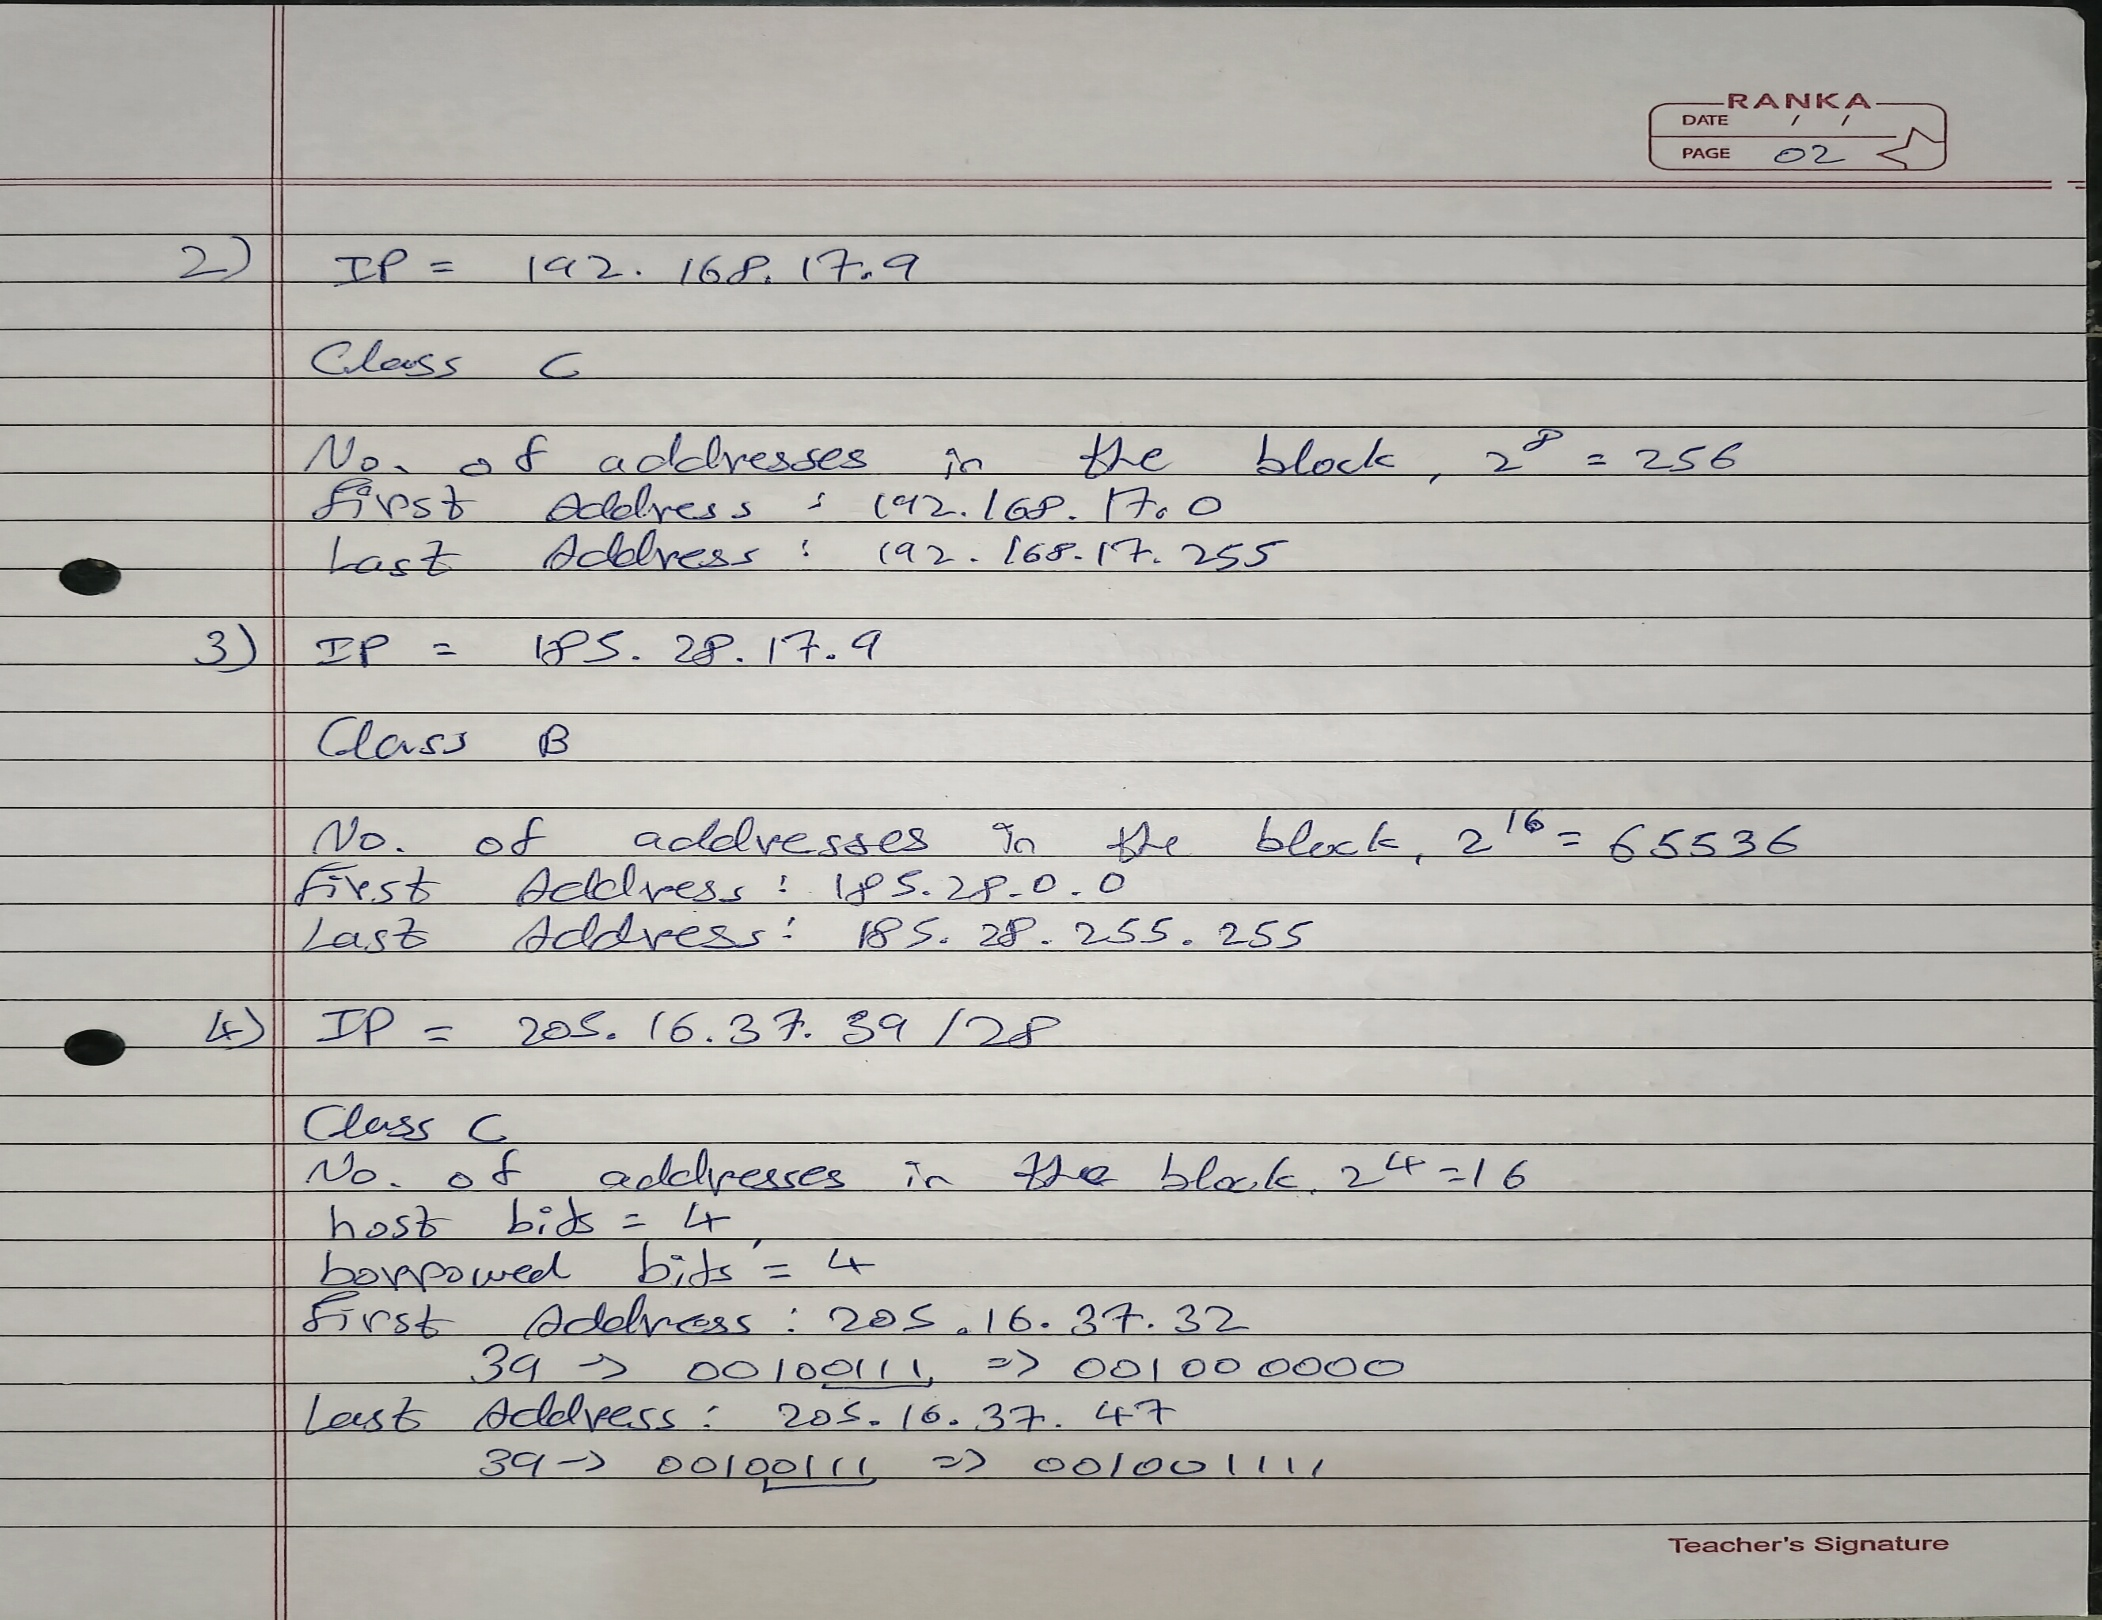 RANKA
DATE / /
PAGE 02
2) IP = 192.168.17.9
Class C
No. of addresses in the block, 2⁸ = 256
First Address : 192.168.17.0
Last Address : 192.168.17.255
3) IP = 185.28.17.9
Class B
No. of addresses in the block, 2¹⁶ = 65536
First Address : 185.28.0.0
Last Address : 185.28.255.255
4) IP = 205.16.37.39/28
Class C
No. of addresses in the block, 2⁴ = 16
host bits = 4,
borrowed bits = 4
First Address : 205.16.37.32
39 -> 00100111 => 001000000
Last Address : 205.16.37.47
39 -> 00100111 => 001001111
Teacher's Signature